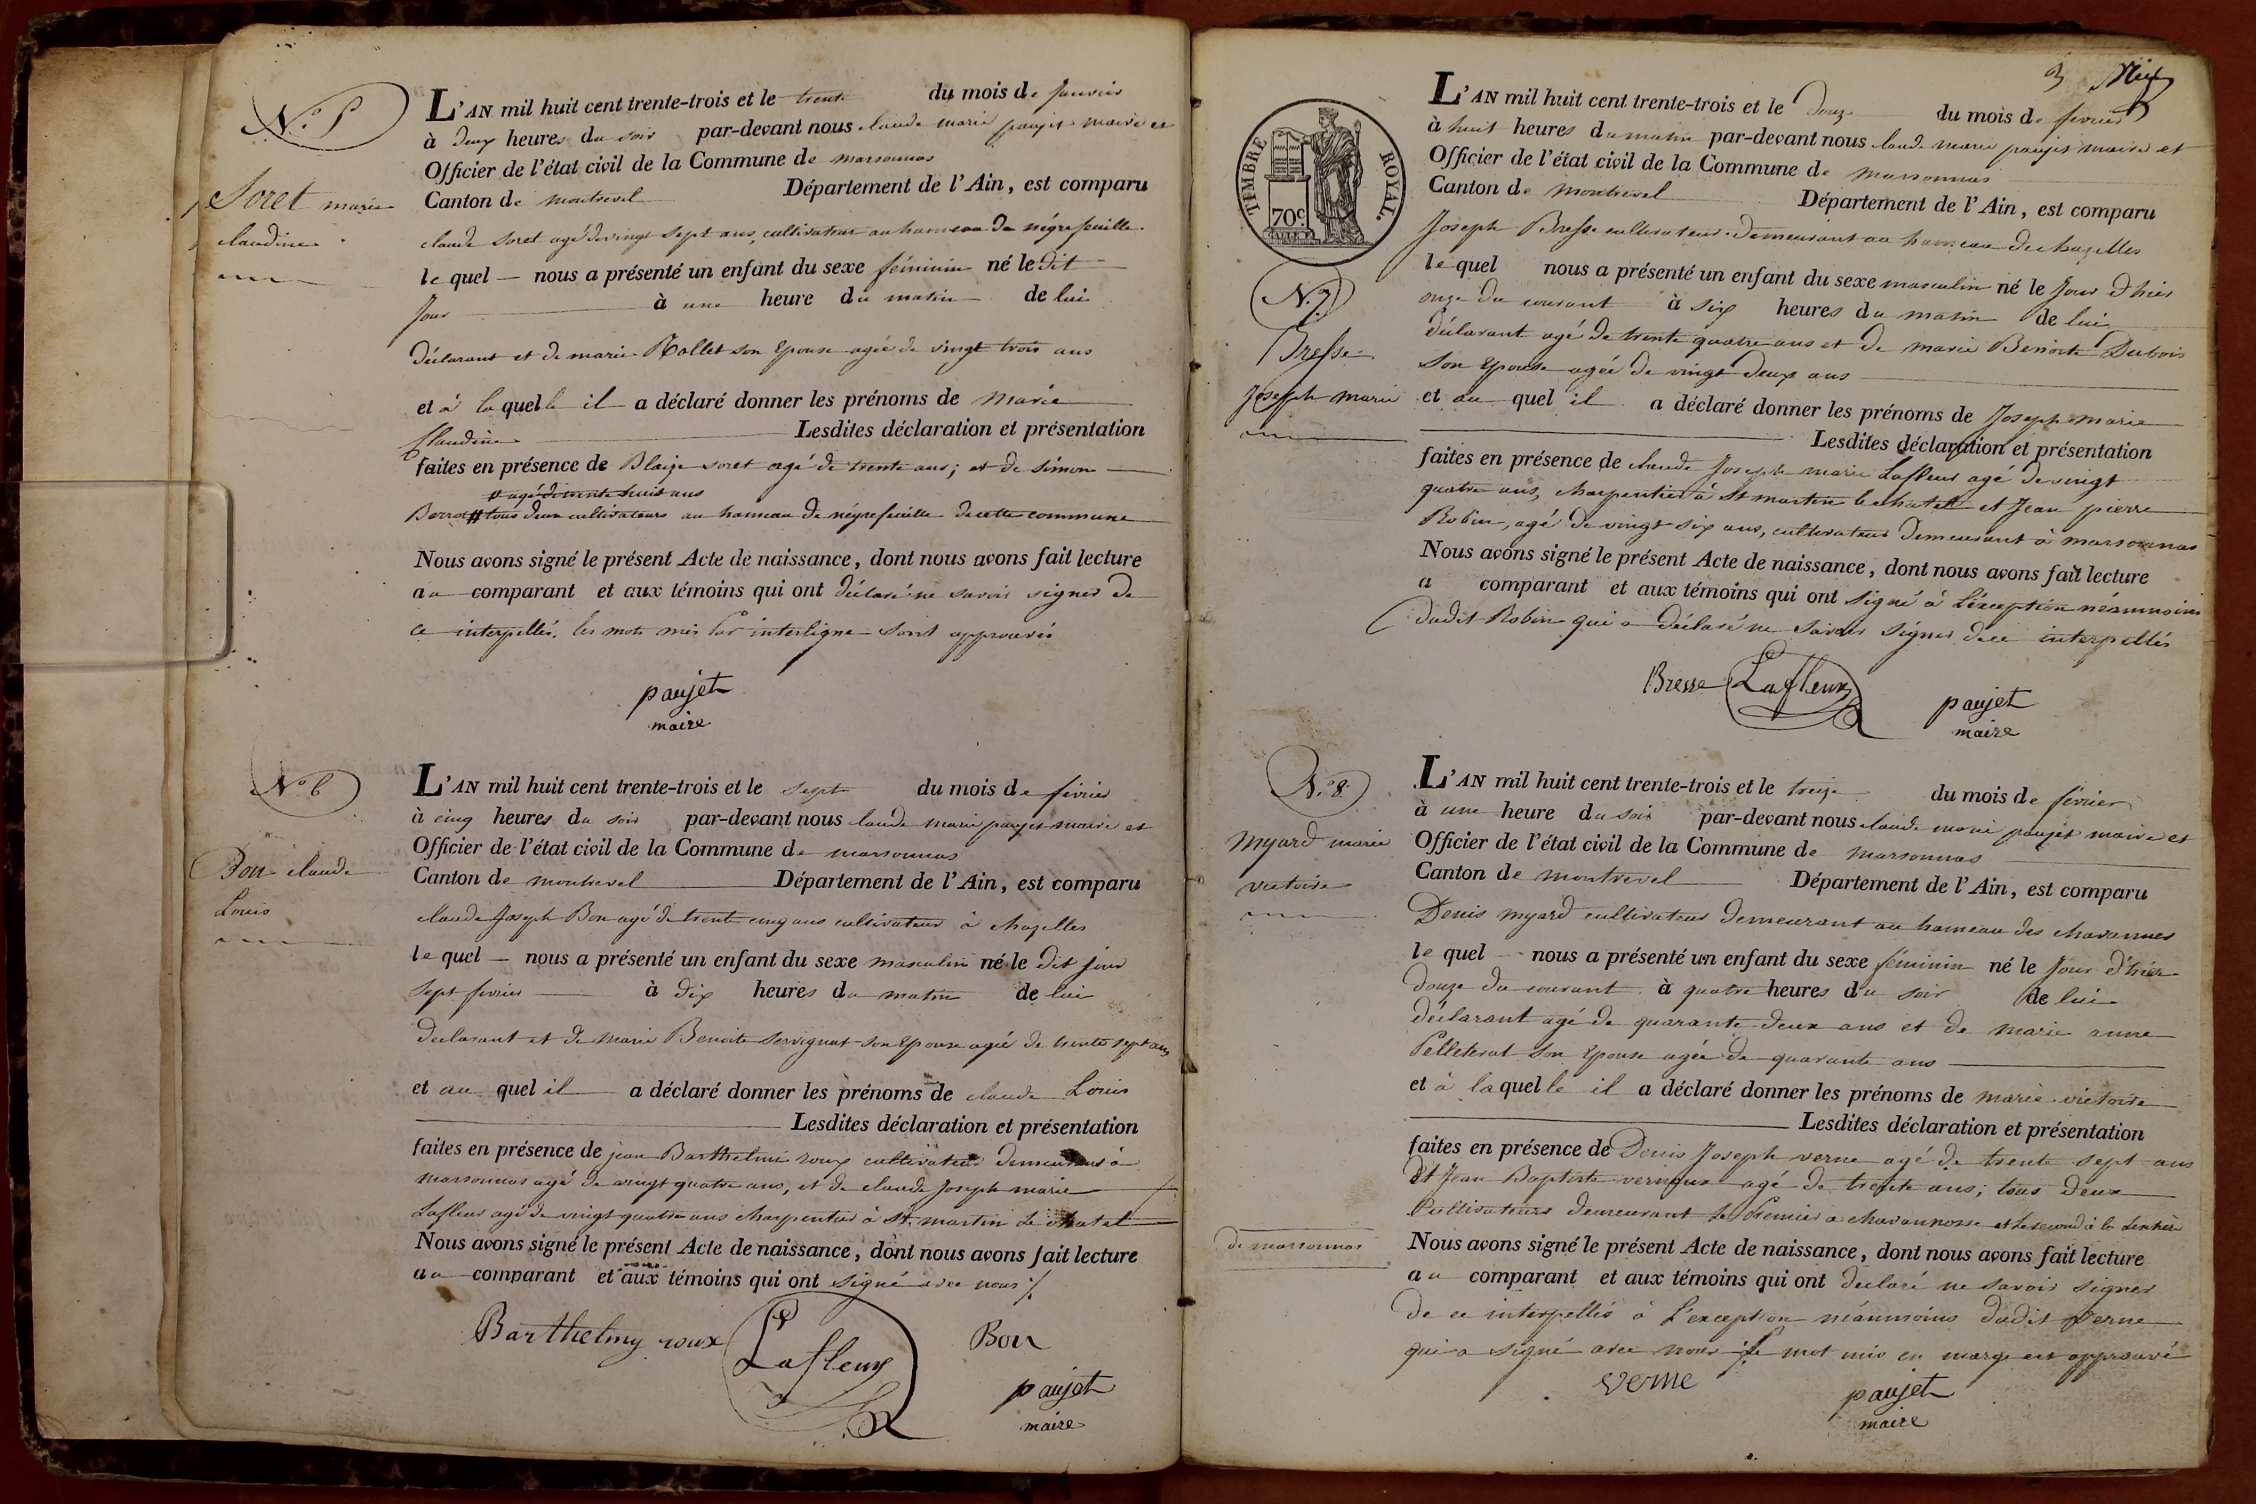 N.º 5
Soret marie
claudine
L'AN mil huit cent trente-trois et le trente du mois de janvier
à deux heures du soir par-devant nous claude marie paujet maire et
Officier de l'état civil de la Commune de marsonnas
Canton de montrevel Département de l'Ain, est comparu
claude soret agé de vingt sept ans, cultivateur au hameau de négrefeuille
le quel nous a présenté un enfant du sexe féminin né le dit
jour à une heure du matin de lui
déclarant et de marie Rollet son épouse agée de vingt trois ans
et à laquelle il a déclaré donner les prénoms de marie
Claudine Lesdites déclaration et présentation
faites en présence de Blaize soret agé de trente ans; et de simon
# agé de trente huit ans
# tous deux cultivateurs au hameau de négrefeuille de cette commune
Nous avons signé le présent Acte de naissance, dont nous avons fait lecture
au comparant et aux témoins qui ont déclaré ne savoir signer de
ce interpellés. les mots mis par interligne sont approuvés
paujet
maire
Nº 6
Bon claude
Louis
L'AN mil huit cent trente-trois et le sept du mois de février
à cinq heures du soir par-devant nous claude marie paujet maire et
Officier de l'état civil de la Commune de marsonnas
Canton de montrevel Département de l'Ain, est comparu
claude Joseph Bon agé de trente cinq ans cultivateur à chazelles
le quel nous a présenté un enfant du sexe masculin né le dit jour
sept février à dix heures du matin de lui
déclarant et de marie Benoite servignat son épouse agée de trente sept ans
et au quel il a déclaré donner les prénoms de claude Louis
Lesdites déclaration et présentation
faites en présence de jean Barthelmi roux cultivateur demeurant à
marsonnas agé de vingt quatre ans, et de claude Joseph marie
Lafleur agé de vingt quatre ans charpentier à St. martin le chatel
Nous avons signé le présent Acte de naissance, dont nous avons fait lecture
au comparant et aux témoins qui ont signé avec nous
Barthelmy roux Lafleur Bon
paujet
maire
3
TIMBRE ROYAL.
70c
N.º 7
Bresse
Joseph marie
L'AN mil huit cent trente-trois et le douze du mois de février
à huit heures du matin par-devant nous claude marie paujet maire et
Officier de l'état civil de la Commune de marsonnas
Canton de montrevel Département de l'Ain, est comparu
Joseph Bresse cultivateur demeurant au hameau de chazelles
le quel nous a présenté un enfant du sexe masculin né le jour d'hier
onze du courant à six heures du matin de lui
déclarant agé de trente quatre ans et de marie Benoite Dubois
son épouse agée de vingt deux ans
et au quel il a déclaré donner les prénoms de Joseph marie
Lesdites déclaration et présentation
faites en présence de claude Joseph marie Lafleur agé de vingt
quatre ans, charpentier à St martin le chatel et Jean pierre
Robin, agé de vingt six ans, cultivateur demeurant à marsonnas
Nous avons signé le présent Acte de naissance, dont nous avons fait lecture
a comparant et aux témoins qui ont signé à l'éxception néanmoins
dudit Robin qui a déclaré ne savoir signer de ce interpellés
Bresse Lafleur paujet
maire
N.º 8
myard marie
victoire
L'AN mil huit cent trente-trois et le treize du mois de février
à une heure du soir par-devant nous claude marie paujet maire et
Officier de l'état civil de la Commune de marsonnas
Canton de montrevel Département de l'Ain, est comparu
Denis myard cultivateur demeurant au hameau des chavannes
le quel nous a présenté un enfant du sexe féminin né le jour d'hier
douze du courant à quatre heures du soir de lui
déclarant agé de quarante deux ans et de marie anne
Pelleterat son épouse agée de quarante ans
et à laquelle il a déclaré donner les prénoms de marie victoire
Lesdites déclaration et présentation
faites en présence de Denis Joseph verne agé de trente sept ans
et Jean Baptiste vernoux agé de trente ans; tous deux
Cultivateurs demeurant le premier a chavannosse et le second à la
de marsonnas
Nous avons signé le présent Acte de naissance, dont nous avons fait lecture
au comparant et aux témoins qui ont déclaré ne savoir signer
de ce interpellés à l'exception néanmoins dudit verne
qui a signé avec nous le mot mis en marge est approuvé
verne paujet
maire